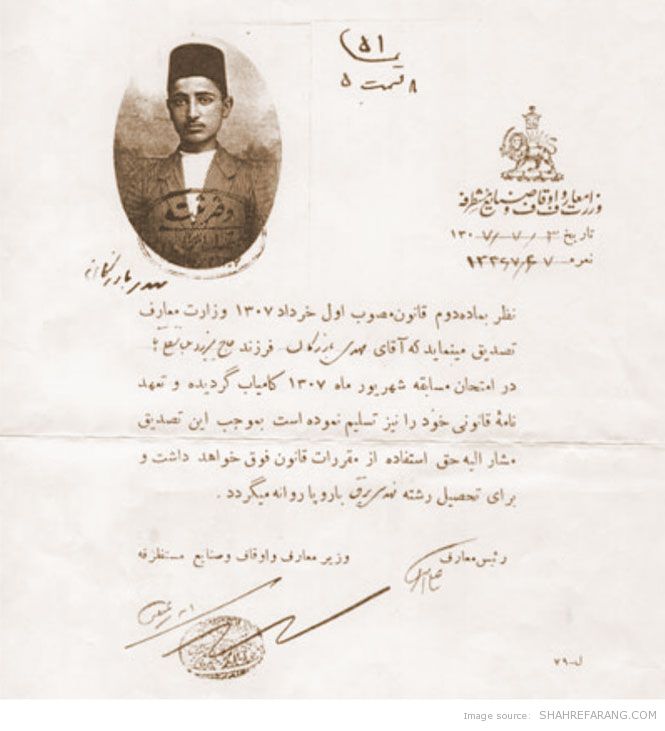 ۵۱
۸ قسمت ۵
وزارت معارف و اوقاف و صنایع مستظرفه
تاریخ ۱۳۰۷/۷/۳
نمره
مهدی بازرگان
نظر بماده دوم قانون مصوب اول خرداد ۱۳۰۷ وزارت معارف
تصدیق مینماید که آقای مهدی بازرگان فرزند حاج
در امتحان مسابقه شهریور ماه ۱۳۰۷ کامیاب گردیده و تعهد
نامهٔ قانونی خود را نیز تسلیم نموده است بموجب این تصدیق
مشار الیه حق استفاده از مقررات قانون فوق خواهد داشت و
برای تحصیل رشته برق باروپا روانه میگردد .
رئیس معارف
وزیر معارف و اوقاف و صنایع مستظرفه
ل-۷۹
Image source: SHAHREFARANG.COM